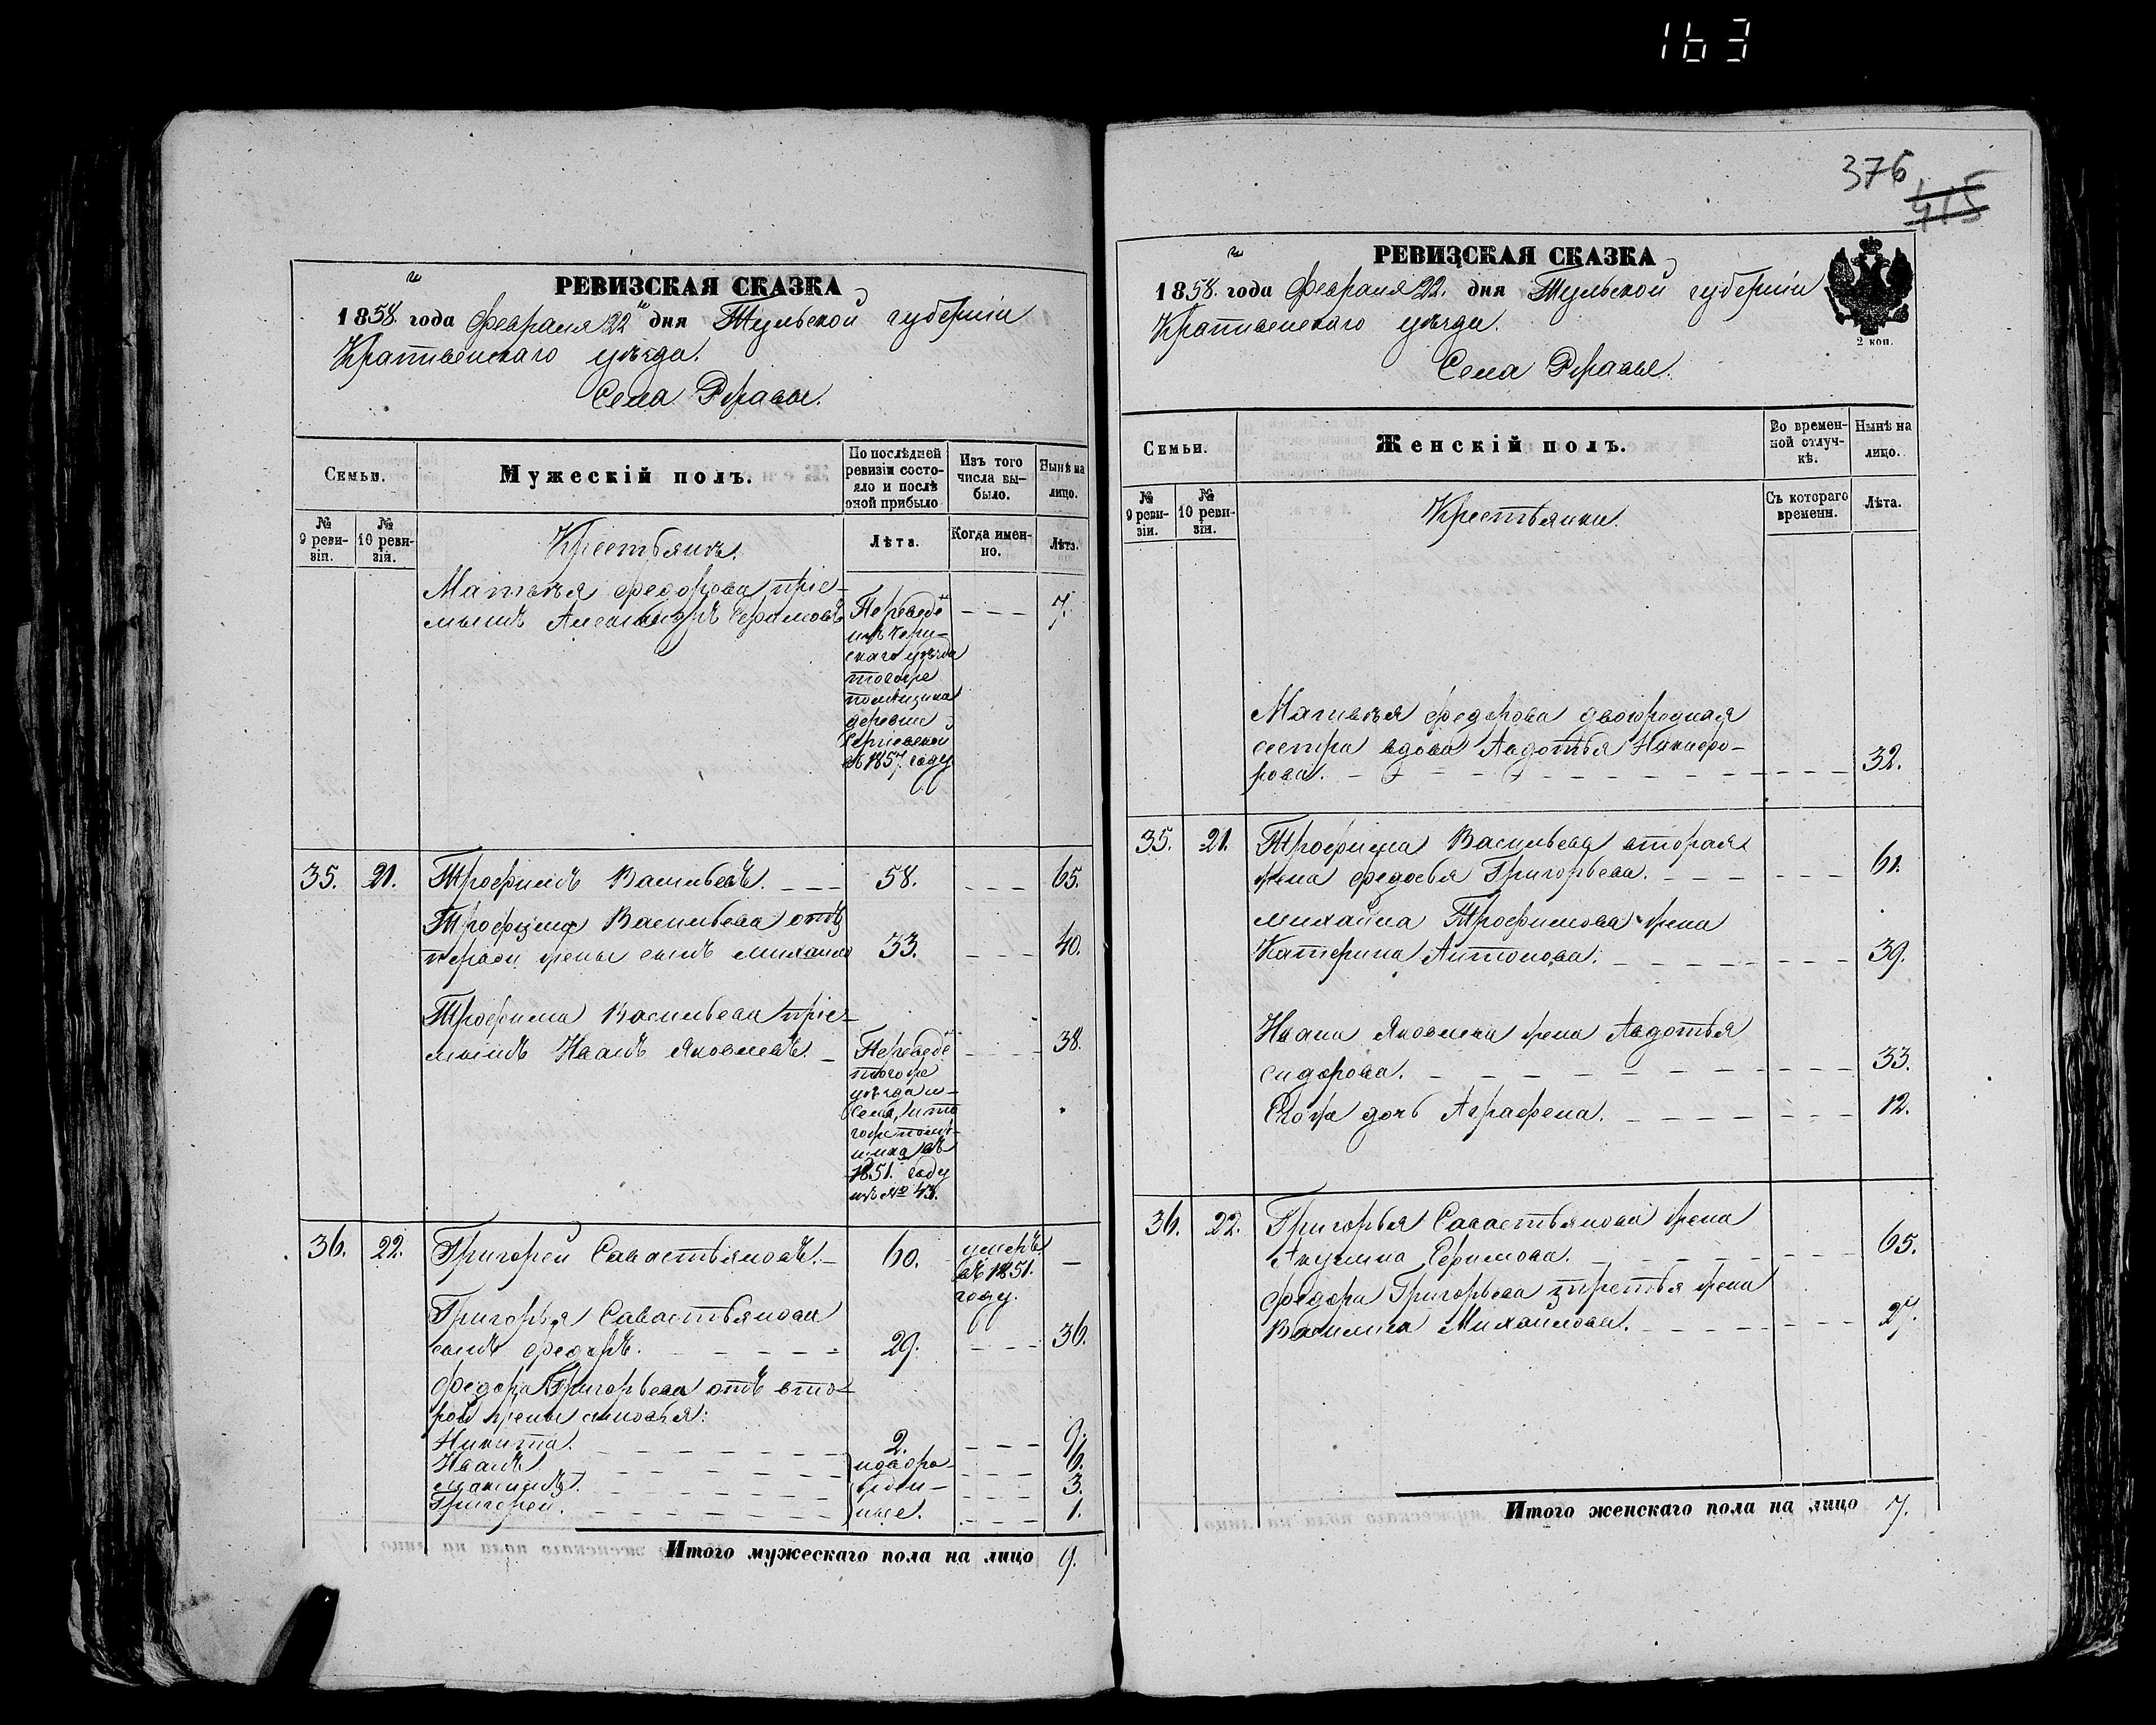 163
РЕВИЗСКАЯ СКАЗКА
1858. года Февраля 22 дня Тульской губерніи
Крапивенскаго уѣзда.
Села
Семьи.
Мужескій полъ.
По послѣдней ревизіи состояло и послѣ оной прибыло
Изъ того числа выбыло.
Нынѣ на лицо.
№ 9 ревизіи.
№ 10 ревизіи.
Крестьянѣ.
Лѣта.
Когда именно.
Лѣта.
Матвѣя Федорова пріе-
мышъ Александръ Ефимовъ
Переведе
изъ
скаго уѣзда
тогоже
помѣщика
деревни
Сергіевской
въ 1857. году
7.
35. 21. Трофимъ Васильевъ. 58. 65.
Трофима Васильева отъ
первой жены сынъ Михаило 33. 40.
Трофима Васильева пріе-
мышъ Иванъ Яковлевъ.
Переведе
тогоже
уѣзда и
села,
гоже помѣ-
щика въ
1851. году
изъ № 43.
38.
36. 22. Григорей Савастьяновъ. 60.
умеръ
въ 1851.
году.
Григорья Савастьянова
сынъ Федоръ. 29. 36.
Федора Григорьева отъ вто-
рой жены сыновья:
Никита. 2. 9.
Иванъ 6.
Максимъ. 3.
Григорей. 1.
Итого мужескаго пола на лицо 9.
376
415
РЕВИЗСКАЯ СКАЗКА
1858. года Февраля 22. дня Тульской губерніи
Крапивенскаго уѣзда.
2 коп.
Села
Семьи.
Женскій полъ.
Во временной отлучкѣ.
Нынѣ на лицо.
№ 9 ревизіи.
№ 10 ревизіи.
Крестьянки.
Съ котораго времени.
Лѣта.
Матвѣя Федорова двоюродная
сестра вдова Авдотья Никифо-
рова. 32.
35. 21. Трофима Васильева вторая
жена Федосья Григорьева. 61.
Михайла Трофимова жена
Катерина Антонова. 39.
Ивана Яковлева жена Авдотья
Сидорова. 33.
Егожа дочь Аграфена. 12.
36. 22. Григорья Савастьянова жена
Акулина Ефимова. 65.
Федора Григорьева третья жена
Василиса Михайлова. 27.
Итого женскаго пола на лицо 7.